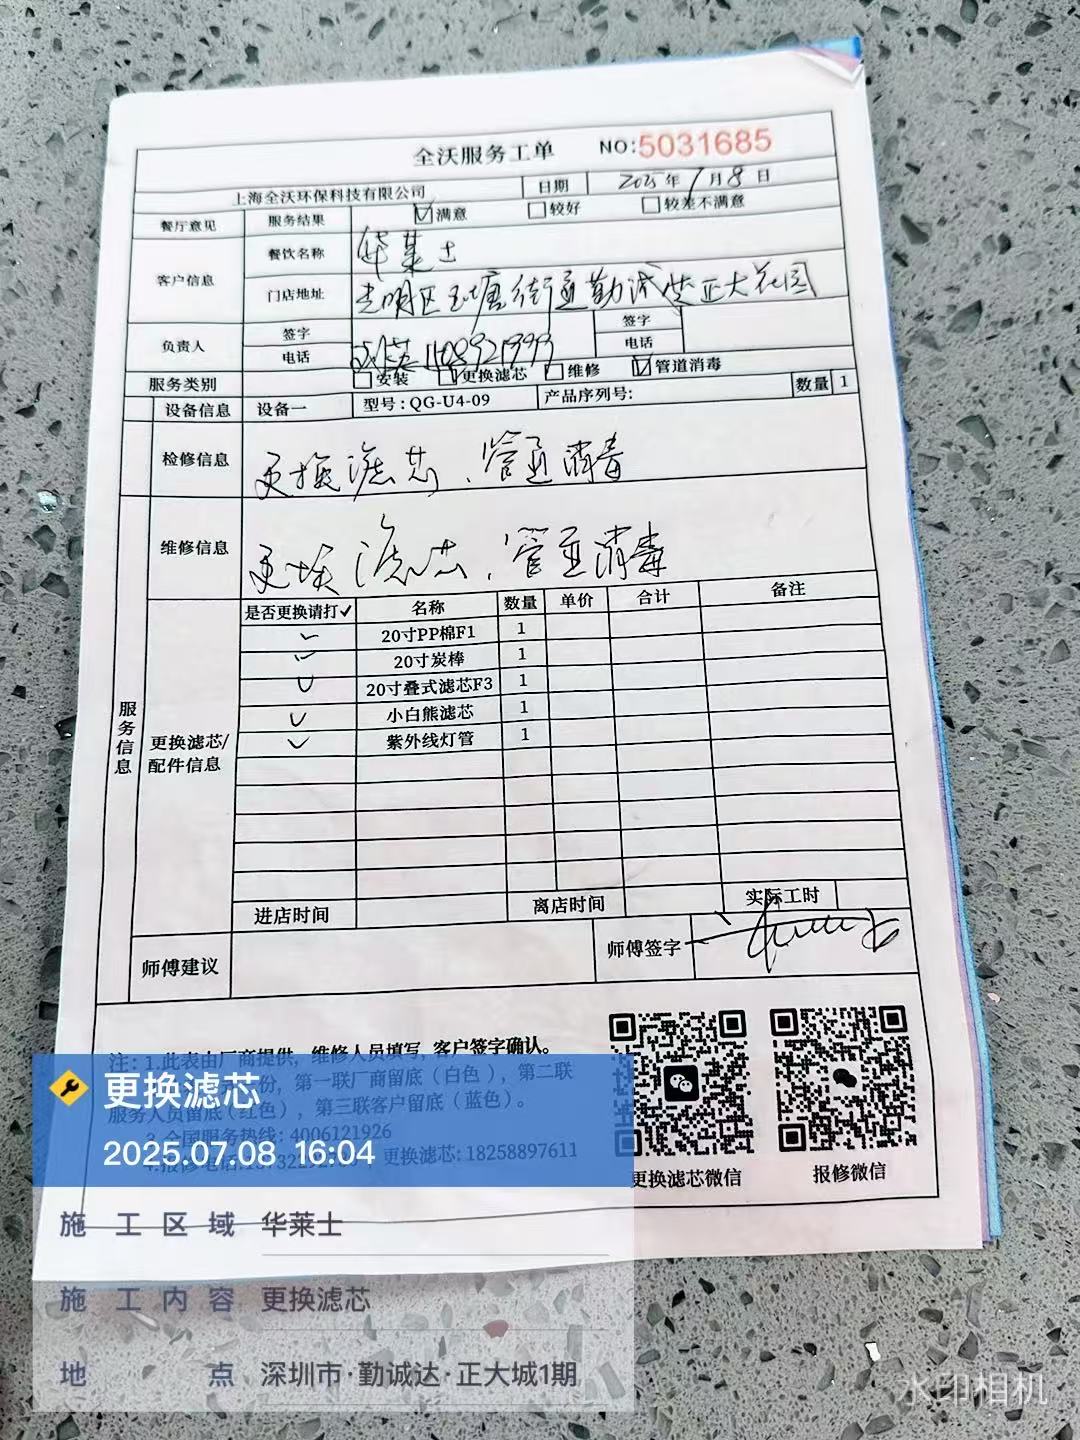 全沃服务工单 NO:5031685
上海全沃环保科技有限公司 日期 2025年7月8日
餐厅意见 服务结果 ☑满意 □较好 □较差不满意
客户信息 餐饮名称 华莱士
门店地址 光明区玉塘街道勤诚达正大花园
负责人 签字 签字
电话 电话
服务类别 □安装 □更换滤芯 □维修 ☑管道消毒
设备信息 设备一 型号:QG-U4-09 产品序列号: 数量 1
检修信息 更换滤芯、管道消毒
维修信息 更换滤芯、管道消毒
服务信息
更换滤芯/配件信息
是否更换请打✓ 名称 数量 单价 合计 备注
✓ 20寸PP棉F1 1
✓ 20寸炭棒 1
✓ 20寸叠式滤芯F3 1
✓ 小白熊滤芯 1
✓ 紫外线灯管 1
进店时间 离店时间 实际工时
师傅建议 师傅签字
注: 1.此表由厂商提供，维修人员填写，客户签字确认。
份，第一联厂商留底（白色），第二联
服务人员留底(红色)，第三联客户留底（蓝色）。
3.全国服务热线: 4006121926
4.报修电话: 更换滤芯:18258897611
更换滤芯微信 报修微信
更换滤芯
2025.07.08 16:04
施工区域 华莱士
施工内容 更换滤芯
地点 深圳市·勤诚达·正大城1期
水印相机